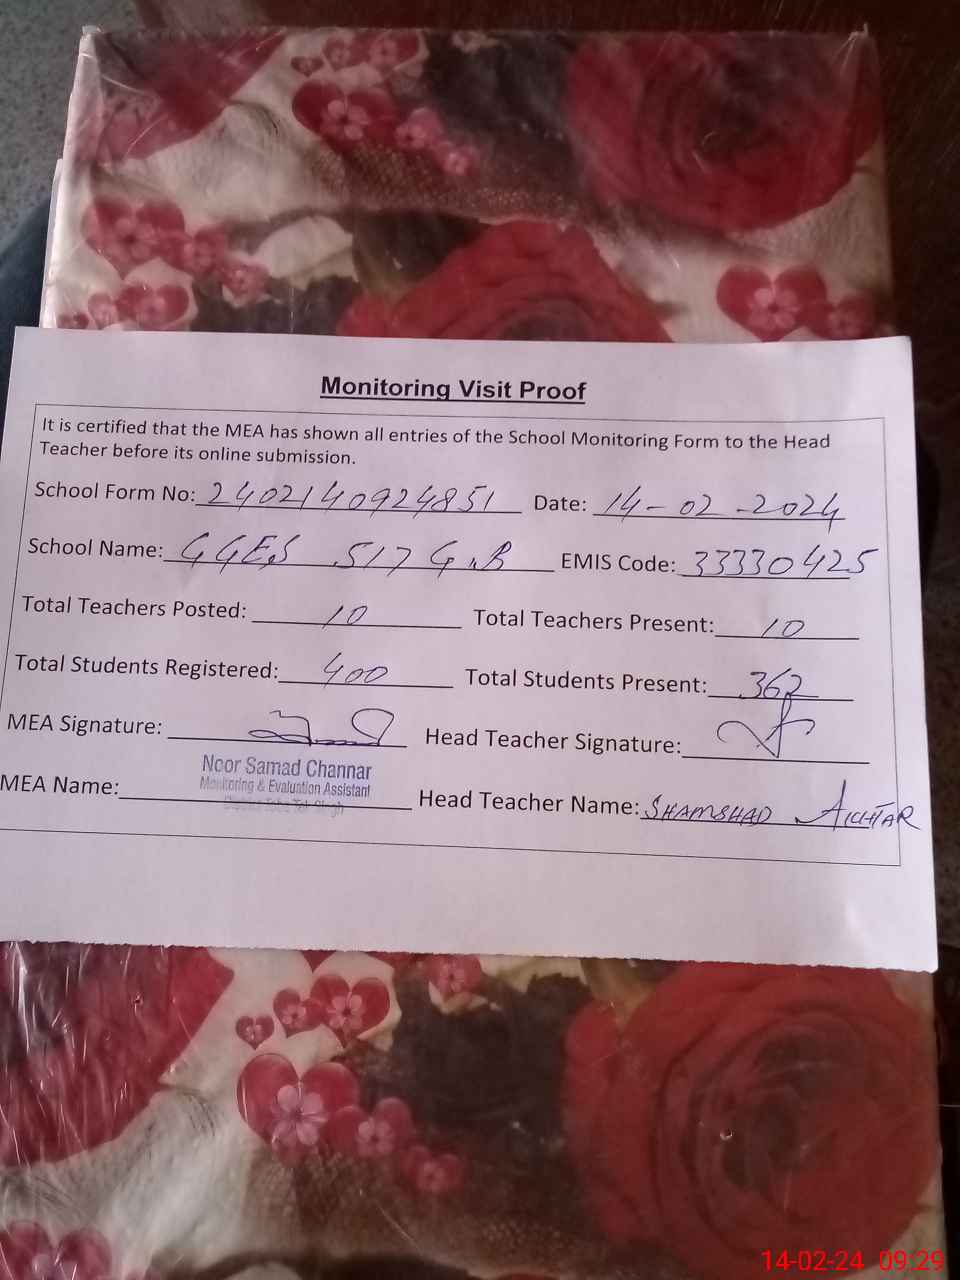 Monitoring Visit Proof
It is certified that the MEA has shown all entries of the School Monitoring Form to the Head
Teacher before its online submission.
School Form No: 2402140924851 Date: 14-02-2024
School Name: GGES 517 G.B EMIS Code: 33330425
Total Teachers Posted: 10 Total Teachers Present: 10
Total Students Registered: 400 Total Students Present: 362
MEA Signature: Head Teacher Signature:
Noor Samad Channar
Monitoring & Evaluation Assistant
District Toba Tek Singh
MEA Name: Head Teacher Name: SHAMSHAD AKHTAR
14-02-24 09:29